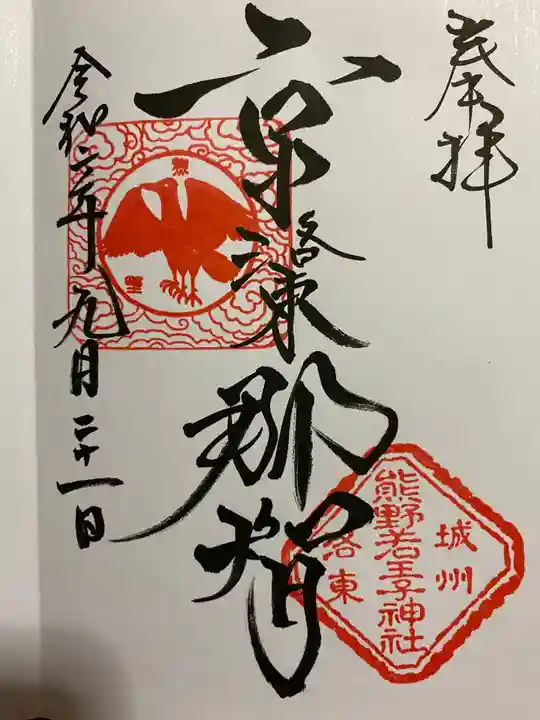 奉拝
京洛東那智
令和六年九月二十一日
熊野
城州
熊野若王子神社
洛東